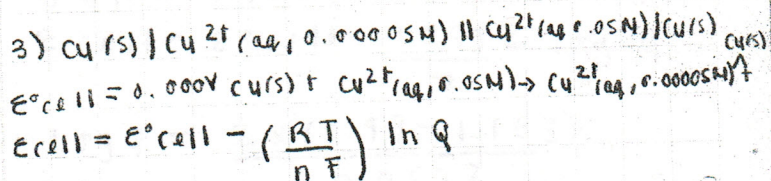 3) Cu (s) | Cu 2+ (aq, 0.00005M) || Cu2+ (aq 0.05M) | Cu(s)
E°cell = 0.000V Cu(s) + Cu2+(aq, 0.05M) → Cu2+(aq, 0.00005M) + Cu(s)
Ecell = E°cell - (RT/nF) ln Q